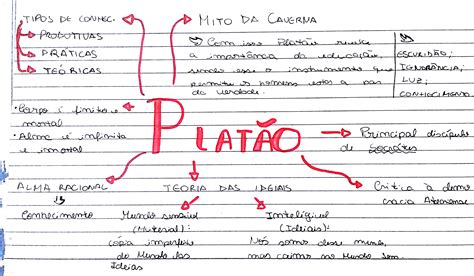 TIPOS DE CONHEC.
PRODUTIVAS
PRÁTICAS
TEÓRICAS
MITO DA CAVERNA
Com isso Platão
a importância da educação,
sendo esse o instrumento que
permite o homem
da verdade.
ESCURIDÃO;
IGNORÂNCIA;
LUZ;
CONHECIMENTO.
Corpo é finito e
mortal
Alma é infinita
e imortal
PLATÃO
Principal discípulo
de Sócrates
ALMA RACIONAL
Conhecimento
TEORIA DAS IDEIAIS
Mundo sensível
(Material):
cópia imperfeita
do Mundo das
Ideias
Inteligível
(Ideias):
Nós somos desse mundo,
mas caímos no Mundo Sen.
Crítica à demo
cracia Ateniense